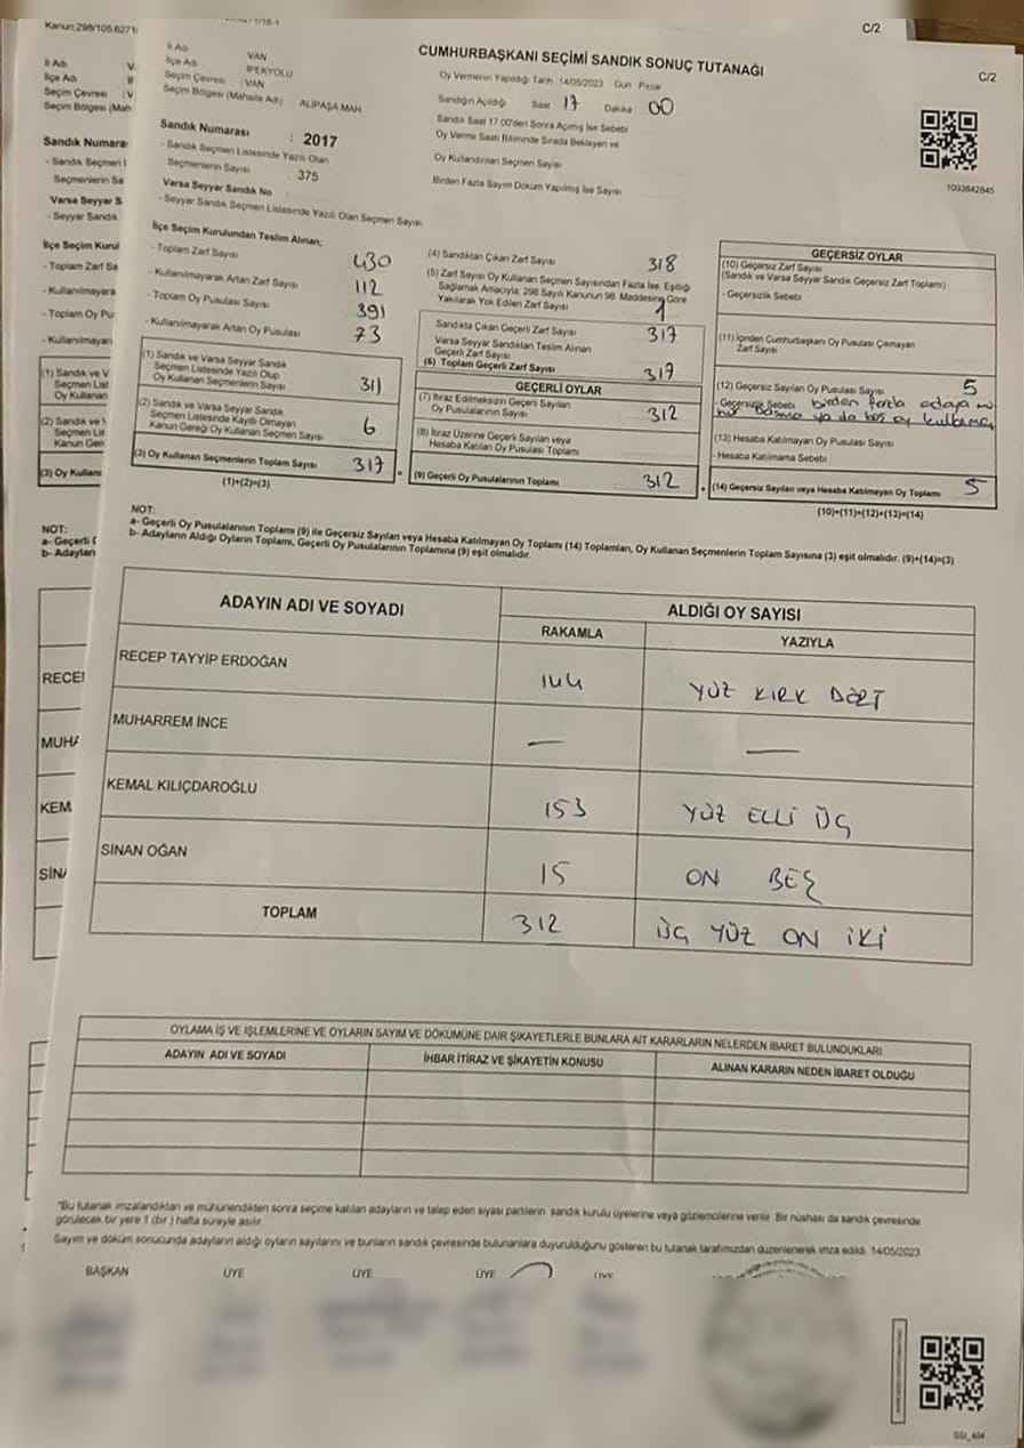 Kanun:298/105.627
C/2
CUMHURBAŞKANI SEÇİMİ SANDIK SONUÇ TUTANAĞI
C/2
İl Adı VAN
İlçe Adı İPEKYOLU
Seçim Çevresi : VAN
Seçim Bölgesi (Mahalle Adı) ALİPAŞA MAH
Sandık Numarası : 2017
- Sandık Seçmen Listesinde Yazılı Olan
Seçmenlerin Sayısı 375
Varsa Seyyar Sandık No
- Seyyar Sandık Seçmen Listesinde Yazılı Olan Seçmen Sayısı
Oy Vermenin Yapıldığı Tarih 14/05/2023 Gün Pazar
Sandığın Açıldığı Saat 17 Dakika 00
Sandık Saat 17.00'den Sonra Açılmış İse Sebebi
Oy Verme Saati Bitiminde Sırada Bekleyen ve
Oy Kullandırılan Seçmen Sayısı
Birden Fazla Sayım Döküm Yapılmış İse Sayısı
1033642845
İlçe Seçim Kurulundan Teslim Alınan;
- Toplam Zarf Sayısı 430
- Kullanılmayarak Artan Zarf Sayısı 112
- Toplam Oy Pusulası Sayısı 391
- Kullanılmayarak Artan Oy Pusulası 73
(1) Sandık ve Varsa Seyyar Sandık
Seçmen Listesinde Yazılı Olup
Oy Kullanan Seçmenlerin Sayısı 311
(2) Sandık ve Varsa Seyyar Sandık
Seçmen Listesinde Kayıtlı Olmayan
Kanun Gereği Oy Kullanan Seçmen Sayısı 6
(3) Oy Kullanan Seçmenlerin Toplam Sayısı 317
(1)+(2)=(3)
(4) Sandıktan Çıkan Zarf Sayısı 318
(5) Zarf Sayısı Oy Kullanan Seçmen Sayısından Fazla İse, Eşitliği
Sağlamak Amacıyla; 298 Sayılı Kanunun 98. Maddesine Göre
Yakılarak Yok Edilen Zarf Sayısı 1
Sandıkta Çıkan Geçerli Zarf Sayısı 317
Varsa Seyyar Sandıktan Teslim Alınan
Geçerli Zarf Sayısı
(6) Toplam Geçerli Zarf Sayısı 317
GEÇERLİ OYLAR
(7) İtiraz Edilmeksizin Geçerli Sayılan
Oy Pusulalarının Sayısı 312
(8) İtiraz Üzerine Geçerli Sayılan veya
Hesaba Katılan Oy Pusulası Toplamı
(9) Geçerli Oy Pusulalarının Toplamı 312
GEÇERSİZ OYLAR
(10) Geçersiz Zarf Sayısı
(Sandık ve Varsa Seyyar Sandık Geçersiz Zarf Toplamı)
- Geçersizlik Sebebi
(11) İçinden Cumhurbaşkanı Oy Pusulası Çıkmayan
Zarf Sayısı
(12) Geçersiz Sayılan Oy Pusulası Sayısı 5
- Geçersizlik Sebebi birden fazla adaya mü
hür basması ya da boş oy kullanma
(13) Hesaba Katılmayan Oy Pusulası Sayısı
- Hesaba Katılmama Sebebi
(14) Geçersiz Sayılan veya Hesaba Katılmayan Oy Toplamı 5
(10)+(11)+(12)+(13)=(14)
NOT:
a- Geçerli Oy Pusulalarının Toplamı (9) ile Geçersiz Sayılan veya Hesaba Katılmayan Oy Toplamı (14) Toplamları, Oy Kullanan Seçmenlerin Toplam Sayısına (3) eşit olmalıdır. (9)+(14)=(3)
b- Adayların Aldığı Oyların Toplamı, Geçerli Oy Pusulalarının Toplamına (9) eşit olmalıdır.
ADAYIN ADI VE SOYADI ALDIĞI OY SAYISI
RAKAMLA YAZIYLA
RECEP TAYYİP ERDOĞAN 144 YÜZ KIRK DÖRT
MUHARREM İNCE — —
KEMAL KILIÇDAROĞLU 153 YÜZ ELLİ ÜÇ
SİNAN OĞAN 15 ON BEŞ
TOPLAM 312 ÜÇ YÜZ ON İKİ
OYLAMA İŞ VE İŞLEMLERİNE VE OYLARIN SAYIM VE DÖKÜMÜNE DAİR ŞİKAYETLERLE BUNLARA AİT KARARLARIN NELERDEN İBARET BULUNDUKLARI
ADAYIN ADI VE SOYADI İHBAR İTİRAZ VE ŞİKAYETİN KONUSU ALINAN KARARIN NEDEN İBARET OLDUĞU
"Bu tutanak imzalandıktan ve mühürlendikten sonra seçime katılan adayların ve talep eden siyasi partilerin sandık kurulu üyelerine veya gözlemcilerine verilir. Bir nüshası da sandık çevresinde
görülecek bir yere 1 (bir) hafta süreyle asılır.
Sayım ve döküm sonucunda adayların aldığı oyların sayılarını ve bunların sandık çevresinde bulunanlara duyurulduğunu gösteren bu tutanak tarafımızdan düzenlenerek imza edildi. 14/05/2023
BAŞKAN ÜYE ÜYE ÜYE ÜYE